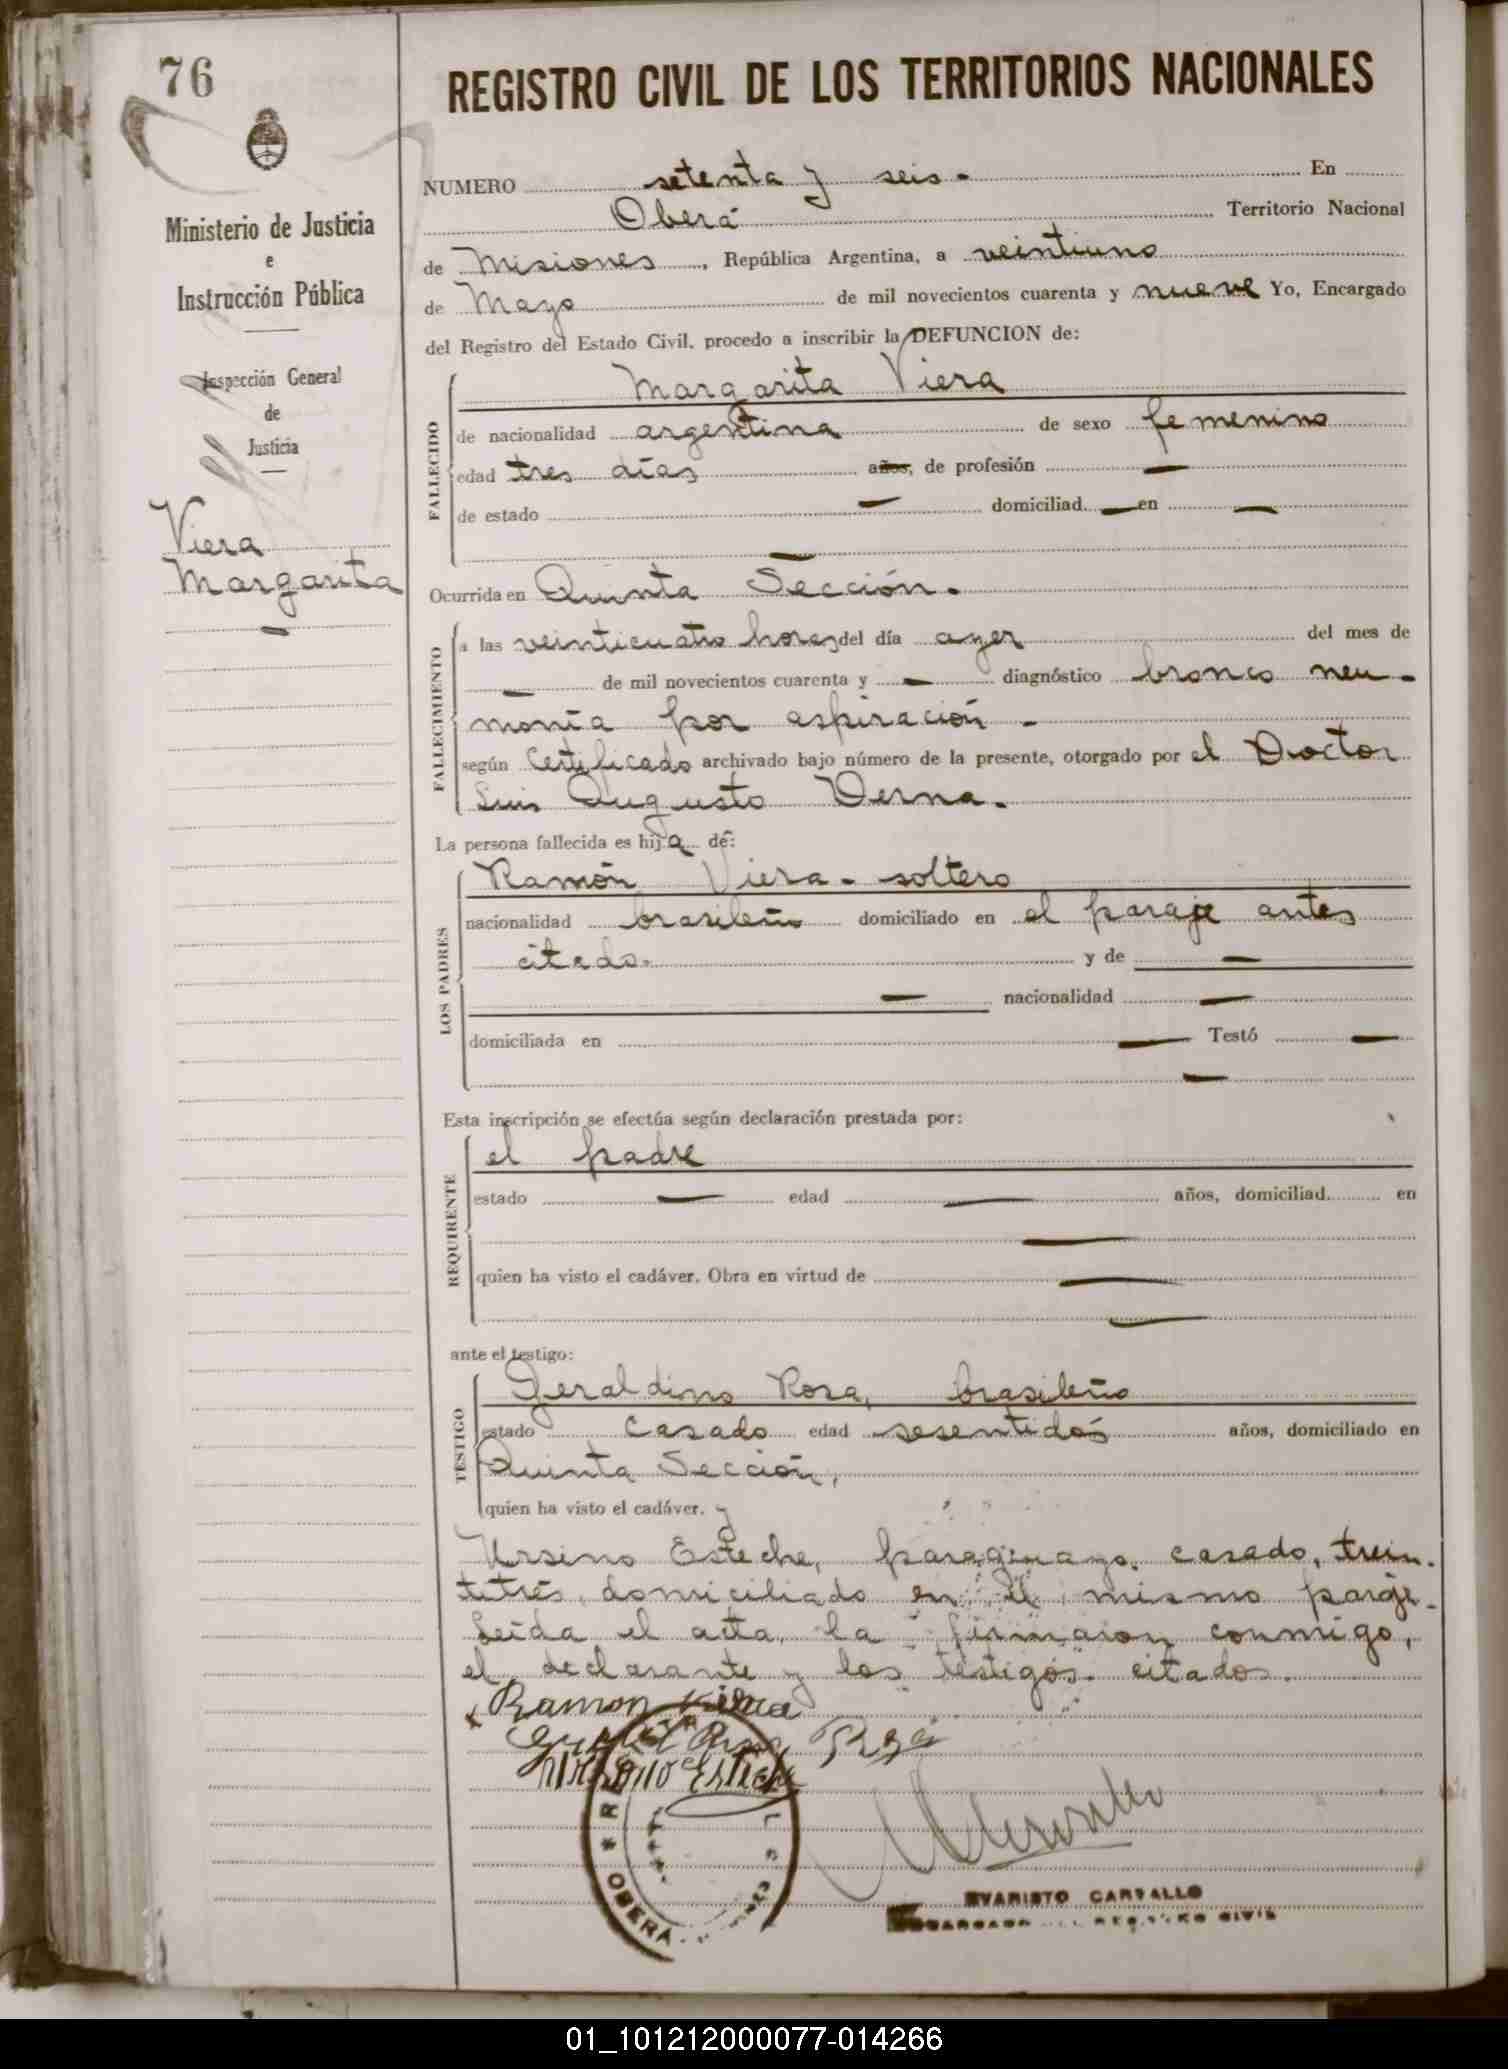 76
REGISTRO CIVIL DE LOS TERRITORIOS NACIONALES
Ministerio de Justicia
e
Instrucción Pública
Inspección General
de
Justicia
Viera
Margarita
NUMERO setenta y seis. En
Oberá Territorio Nacional
de Misiones, República Argentina, a veintiuno
de Mayo de mil novecientos cuarenta y nueve Yo, Encargado
del Registro del Estado Civil, procedo a inscribir la DEFUNCION de:
FALLECIDO
Margarita Viera
de nacionalidad argentina de sexo femenino
edad tres días años, de profesión —
de estado — domiciliad — en —
—
Ocurrida en Quinta Sección.
FALLECIMIENTO
a las veinticuatro horas del día ayer del mes de
— de mil novecientos cuarenta y — diagnóstico bronco neu-
monía por aspiración -
según certificado archivado bajo número de la presente, otorgado por el Doctor
Luis Augusto Derna.
La persona fallecida es hija de:
LOS PADRES
Ramón Viera - soltero
nacionalidad brasileño domiciliado en el paraje antes
citado. y de —
— nacionalidad —
domiciliada en — Testó —
—
Esta inscripción se efectúa según declaración prestada por:
REQUIRENTE
el padre
estado — edad — años, domiciliad en
—
quien ha visto el cadáver. Obra en virtud de —
—
ante el testigo:
TESTIGO
Geraldino Rosa, brasileño
estado casado edad sesentidós años, domiciliado en
Quinta Sección,
quien ha visto el cadáver. y
Ursino Esteche, paraguayo, casado, trein-
titrés, domiciliado en el mismo paraje.
Leída el acta, la firmaron conmigo,
el declarante y los testigos citados.
x Ramon Viera
Esteche
OBERA
EVARISTO CARVALLO
ENCARGADO DEL REGISTRO CIVIL
01_101212000077-014266